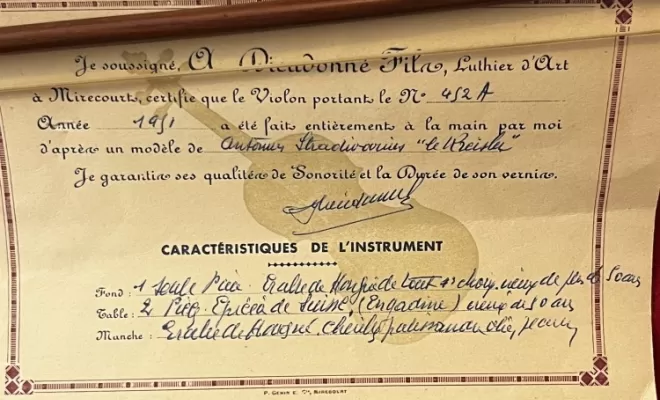 Je soussigné, A Dieudonné Fils, Luthier d'Art
à Mirecourt, certifie que le Violon portant le N° 452 A
Année 1951 a été fait entièrement à la main par moi
d'après un modèle de Antonius Stradivarius "le Kreisler"
Je garantis ses qualités de Sonorité et la Durée de son vernis.
CARACTÉRISTIQUES DE L'INSTRUMENT
Fond : 1 seule Pièce Erable de Hongrie de tout 1er choix, vieux de plus de 50 ans
Table : 2 Pièces Epicéa de Suisse, (Engadine) vieux de 50 ans
Manche : Erable de Hongrie
P. GENIN E. MIRECOURT